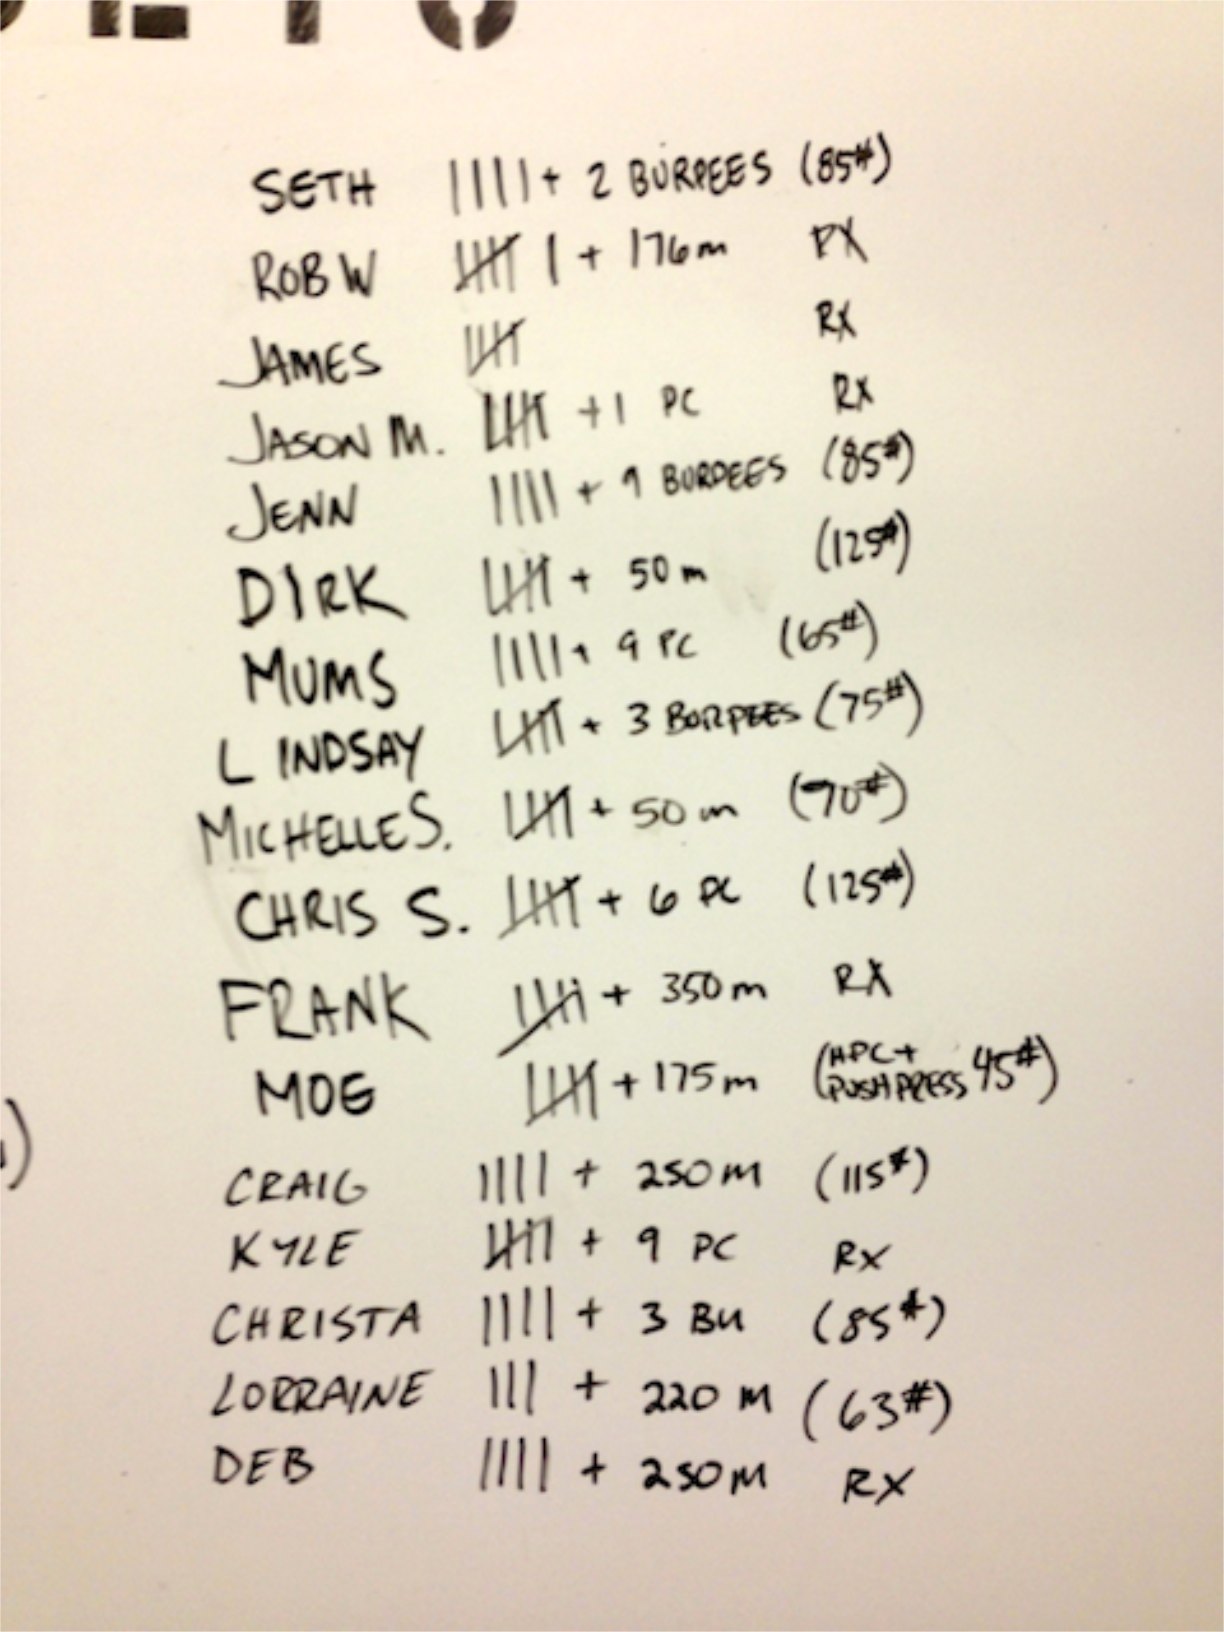 SETH |||| + 2 BURPEES (85#)
ROB W 卌 | + 176m RX
JAMES 卌 RX
JASON M. 卌 +1 PC RX
JENN |||| + 9 BURPEES (85#)
DIRK 卌 + 50m (125#)
MUMS |||| + 9 PC (65#)
LINDSAY 卌 + 3 BURPEES (75#)
MICHELLE S. 卌 + 50m (70#)
CHRIS S. 卌 + 6 PC (125#)
FRANK 卌 + 350m RX
MOE 卌 + 175m (HPC + PUSHPRESS 45#)
CRAIG |||| + 250M (115#)
KYLE 卌 + 9 PC RX
CHRISTA |||| + 3 BU (85#)
LORRAINE ||| + 220 M (63#)
DEB |||| + 250M RX